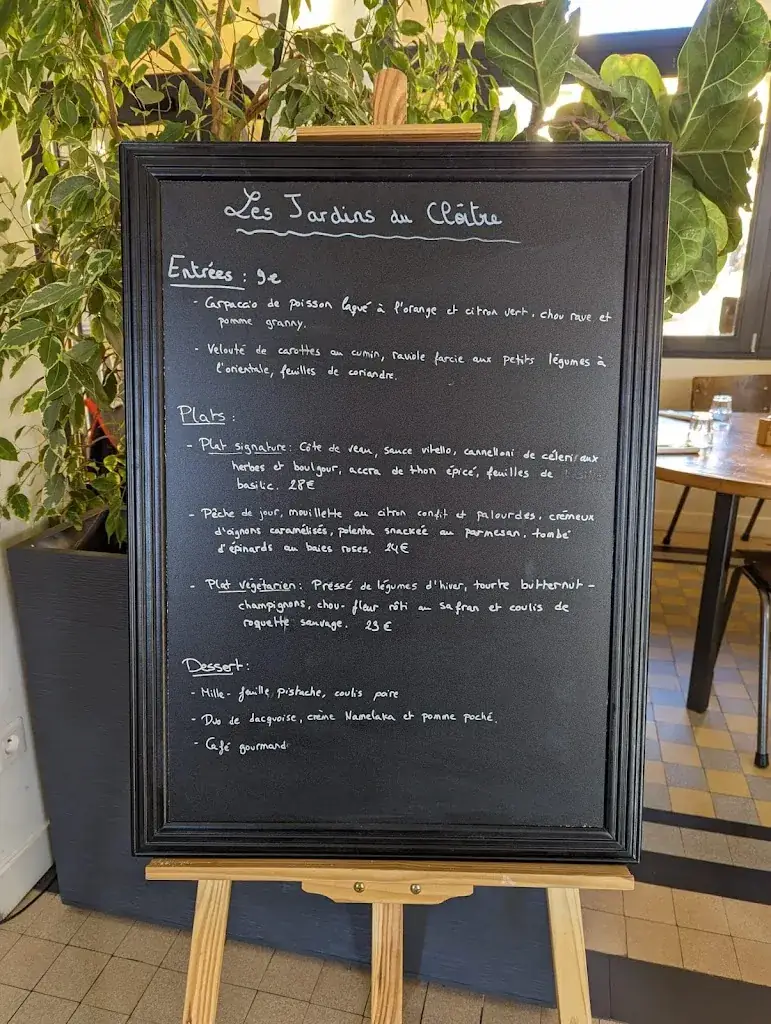 Les Jardins du Cloître
Entrées : 9€
- Carpaccio de poisson laqué à l'orange et citron vert, chou rave et
pomme granny.
- Velouté de carottes au cumin, raviole farcie aux petits légumes à
l'orientale, feuilles de coriandre.
Plats :
- Plat signature : Côte de veau, sauce vitello, cannelloni de céleri aux
herbes et boulgour, accra de thon épicé, feuilles de
basilic. 28€
- Pêche de jour, mouillette au citron confit et palourdes, crémeux
d'oignons caramélisés, polenta snackée au parmesan, tombé
d'épinards au baies roses. 24€
- Plat végétarien : Pressé de légumes d'hiver, tourte butternut -
champignons, chou-fleur rôti au safran et coulis de
roquette sauvage. 23€
Dessert :
- Mille-feuille pistache, coulis poire
- Duo de dacquoise, crème Namelaka et pomme poché.
- Café gourmand